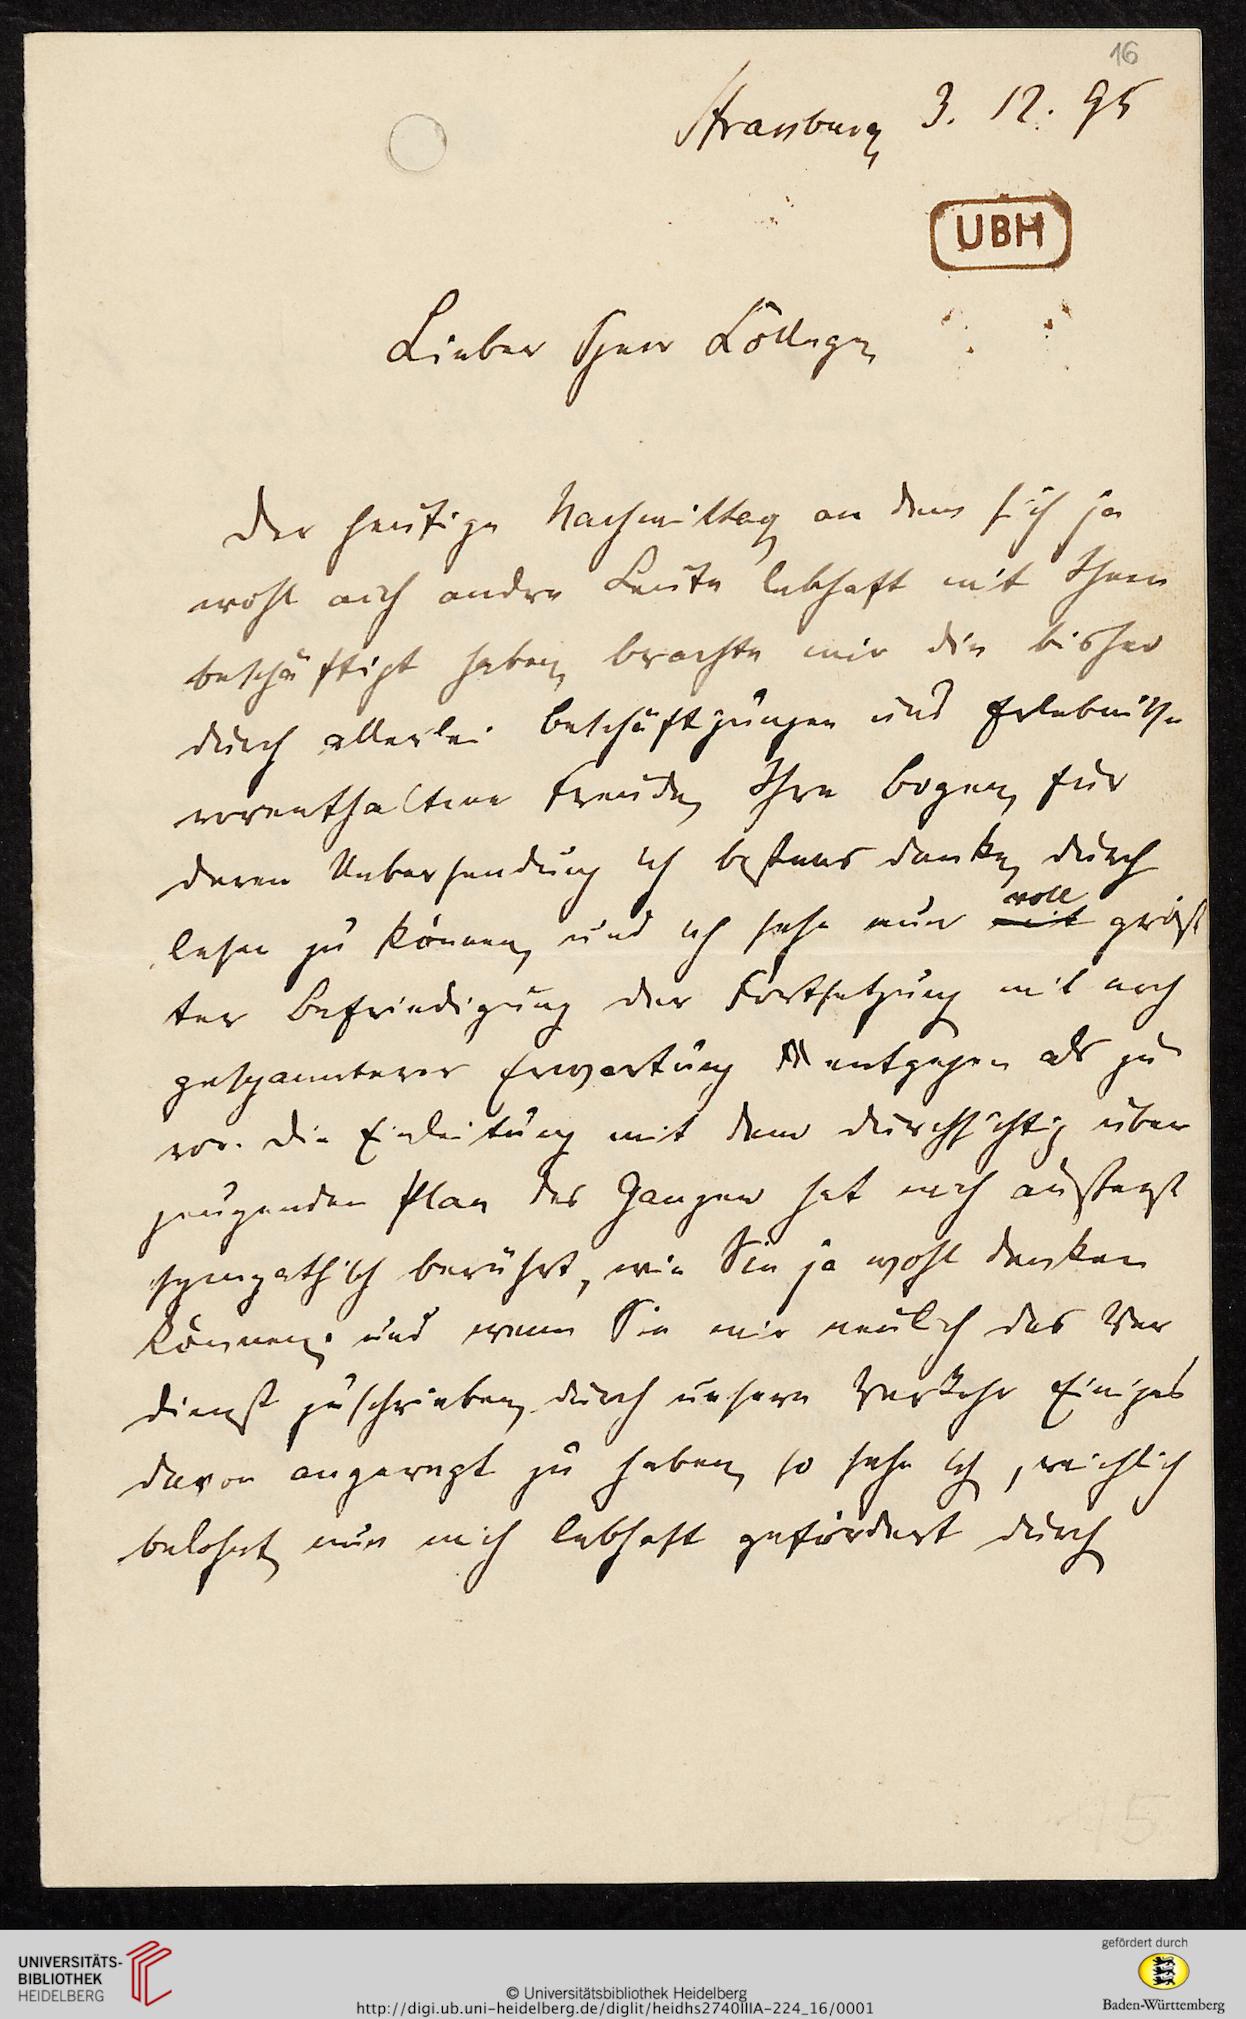 16
Strassburg 3. 12. 95
UBH
Lieber Herr College
Der heutige Nachmittag an dem sich ja
wohl auch andre Leute lebhaft mit Ihnen
beschäftigt haben, brachte mir die bisher
durch allerlei Beschäftigungen und Erlebnisse
vorenthaltene Freude, Ihre Bogen, für
deren Uebersendung ich bestens danke, durch
lesen zu können, und ich sehe nun mit voll gröss
ter Befriedigung der Fortsetzung mit noch
gespannterer Erwartung entgegen als zu
vor. Die Einleitung mit dem durchsichtig über
zeugenden Plan des Ganzen hat mich äusserst
sympathisch berührt, wie Sie ja wohl denken
können. und wenn Sie mir neulich das Ver
dienst zuschrieben, durch unsern Verkehr Einiges
davon angeregt zu haben, so sehe ich, reichlich
belohnt, nun mich lebhaft gefördert durch
5
UNIVERSITÄTS-
BIBLIOTHEK
HEIDELBERG
© Universitätsbibliothek Heidelberg
http://digi.ub.uni-heidelberg.de/diglit/heidhs2740IIIA-224_16/0001
gefördert durch
Baden-Württemberg